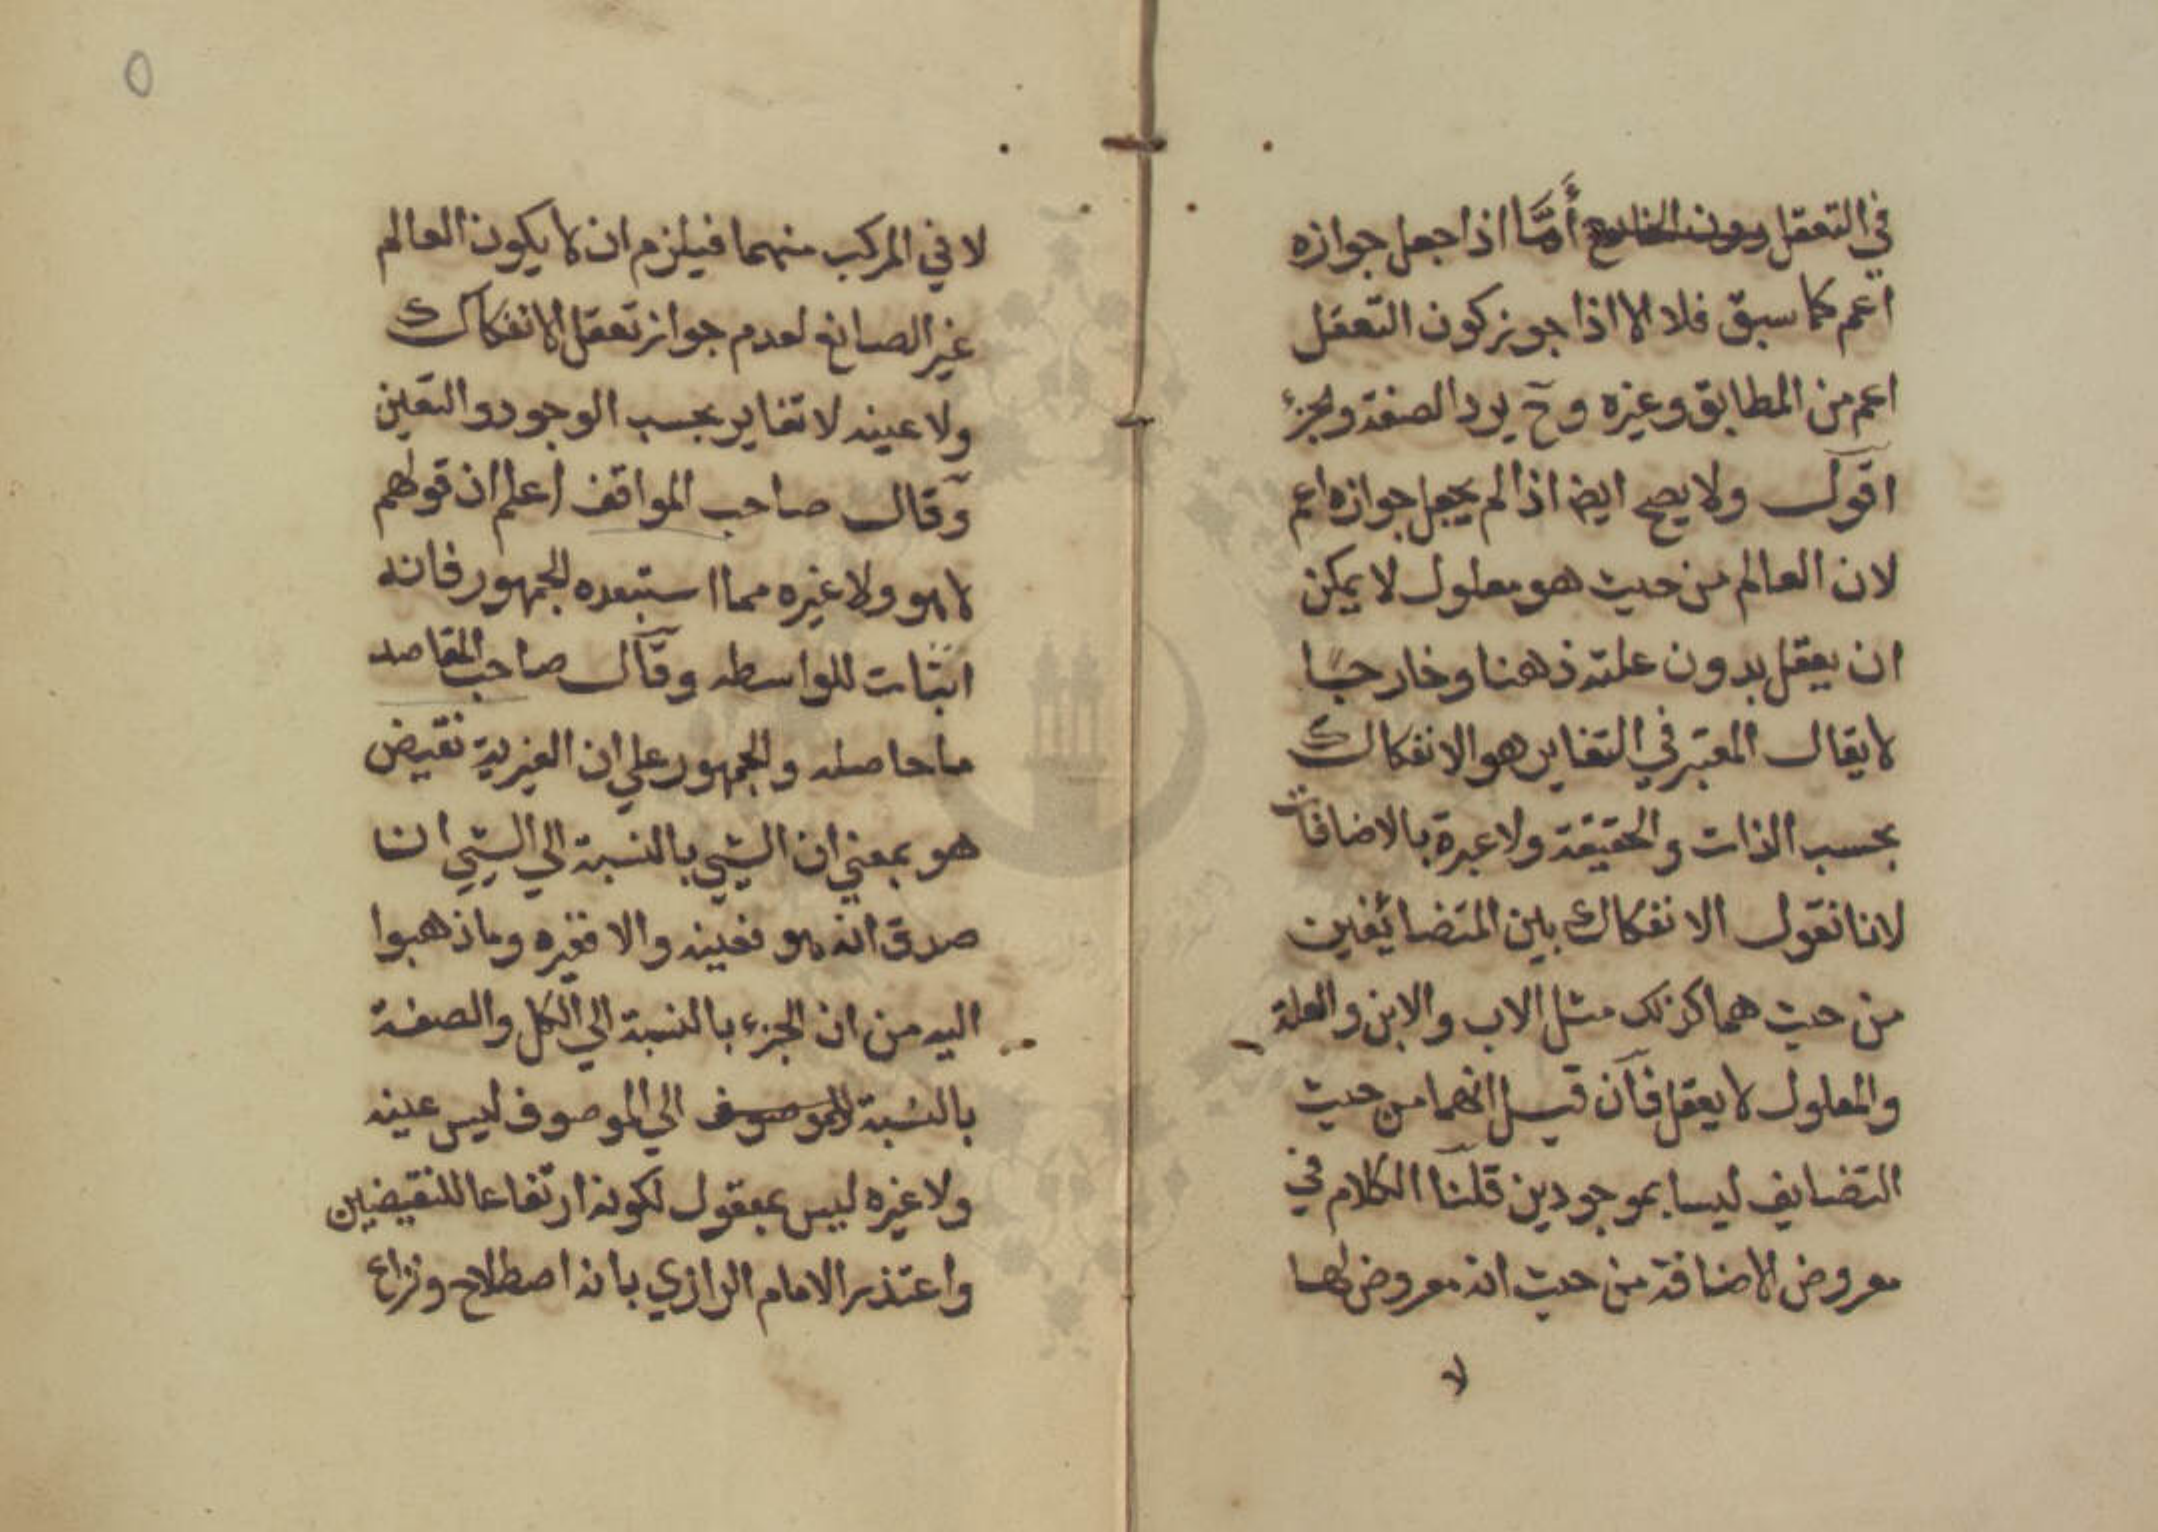 في التعقل دون الخارج أمَّا اذا جعل جوازه
اعم كما سبق فلا الا اذا جوز كون التعقل
اعم من المطابق وغيره وح يرد الصفة والجزء
اقول ولا يصح ايضا اذا لم يجعل جوازه اعم
لان العالم من حيث هو معلول لا يمكن
ان يعقل بدون علته ذهنا وخارجا
لا يقال المعتبر في التغاير هو الانفكاك
بحسب الذات والحقيقة ولا عبرة بالاضافات
لانا نقول الانفكاك بين المتضائفين
من حيث هما كذلك مثل الاب والابن والعلة
والمعلول لا يعقل فآن قيل انهما من حيث
التضايف ليسا بموجودين قلنا الكلام في
معروض الاضافة من حيث انه معروض لها
لا
٥
لا في المركب منهما فيلزم ان لا يكون العالم
غير الصانع لعدم جواز تعقل الانفكاك
ولا عينه لا تغاير بحسب الوجود والتعين
وقال صاحب المواقف اعلم ان قولهم
لا هو ولا غيره مما استبعده الجمهور فانه
اثبات للواسطه وقال صاحب المقاصد
ما حاصله والجمهور علي ان الغيرية نقيض
هو بمعني ان الشيي بالنسبة الي الشيي ان
صدق انه هو فعينه والا فغيره وما ذهبوا
اليه من ان الجزء بالنسبة الي الكل والصفة
بالنسبة للموصوف الي الموصوف ليس عينه
ولا غيره ليس بمعقول لكونه ارتفاعا للنقيضين
واعتذر الامام الرازي بانه اصطلاح ونزاع